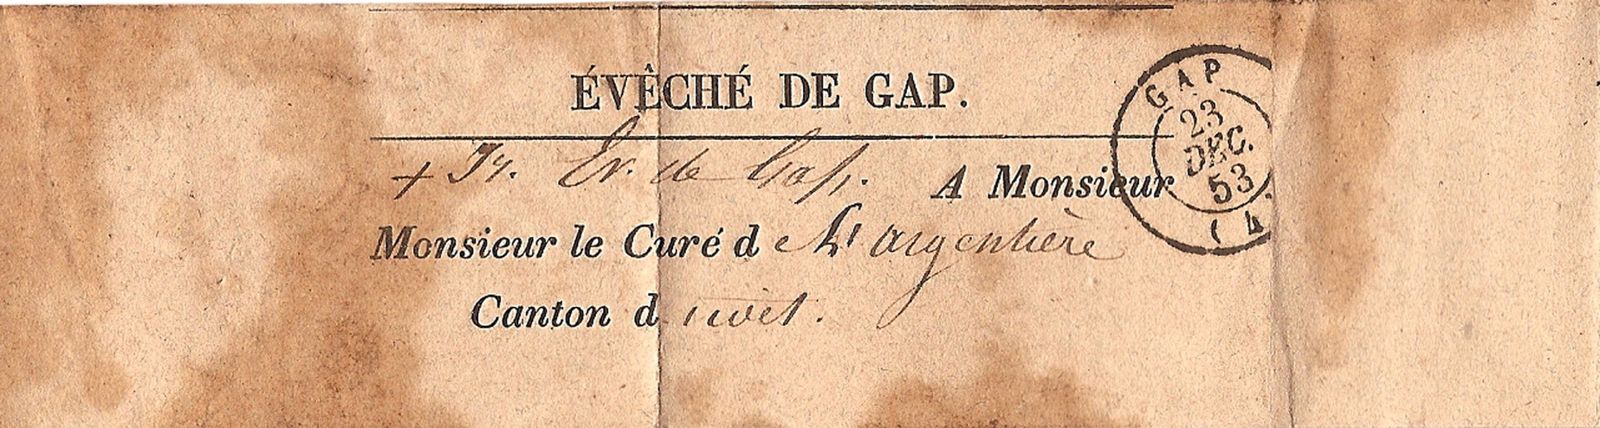 ÉVÊCHÉ DE GAP.
+ Ir. Ev. de Gap. A Monsieur
Monsieur le Curé de L'argentière
Canton d
GAP
23
DEC.
53
(4